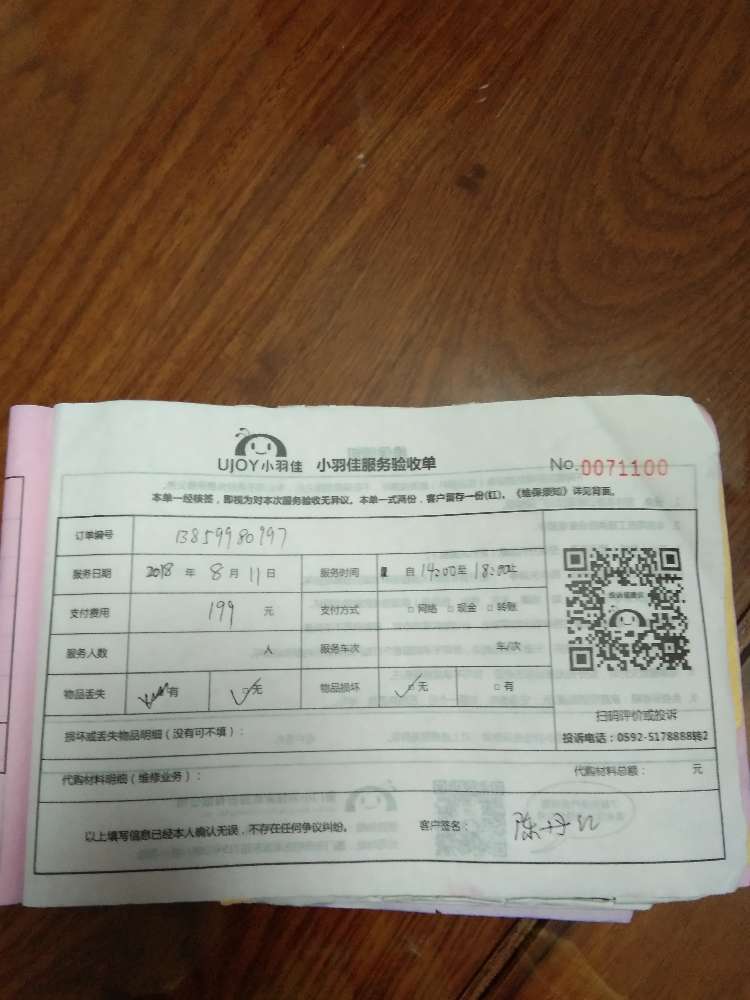 UJOY小羽佳 小羽佳服务验收单 No.0071100
本单一经核签，即视为对本次服务验收无异议。本单一式两份，客户留存一份(红)。《维保须知》详见背面。
订单编号 13859980997
服务日期 2018 年 8 月 11 日 服务时间 自 14:00至 18:00止
支付费用 199 元 支付方式 □ 网络 □ 现金 □ 转账
服务人数 人 服务车次 车/次
物品丢失 有 □ 无 物品损坏 □ 无 □ 有
投诉或建议
扫码评价或投诉
损坏或丢失物品明细（没有可不填）： 投诉电话：0592-5178888转2
代购材料明细（维修业务）： 代购材料总额： 元
以上填写信息已经本人确认无误，不存在任何争议纠纷。 客户签名： 陈丹红